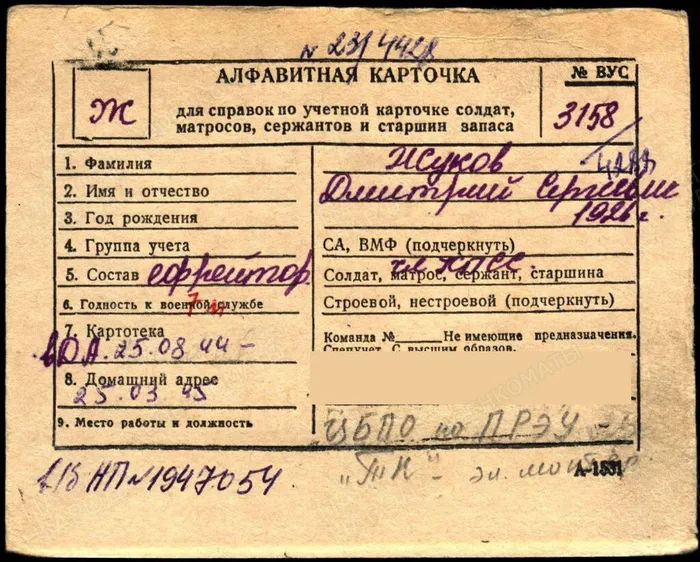 № 23/4428
АЛФАВИТНАЯ КАРТОЧКА
для справок по учетной карточке солдат,
матросов, сержантов и старшин запаса
Ж
№ ВУС
3158/
1. Фамилия Жуков
2. Имя и отчество Дмитрий Сергеевич
3. Год рождения 1926 г.
4. Группа учета СА, ВМФ (подчеркнуть)
5. Состав ефрейтор Солдат, матрос, сержант, старшина
6. Годность к военной службе Строевой, нестроевой (подчеркнуть)
7. Картотека Команда № Не имеющие предназначения.
Спецучет. С высшим образов.
25.08.44 -
8. Домашний адрес
25.03.45
9. Место работы и должность ЦБПО по ПРЭУ -
"ТН" - эл.
А-1531
НП № 1947054